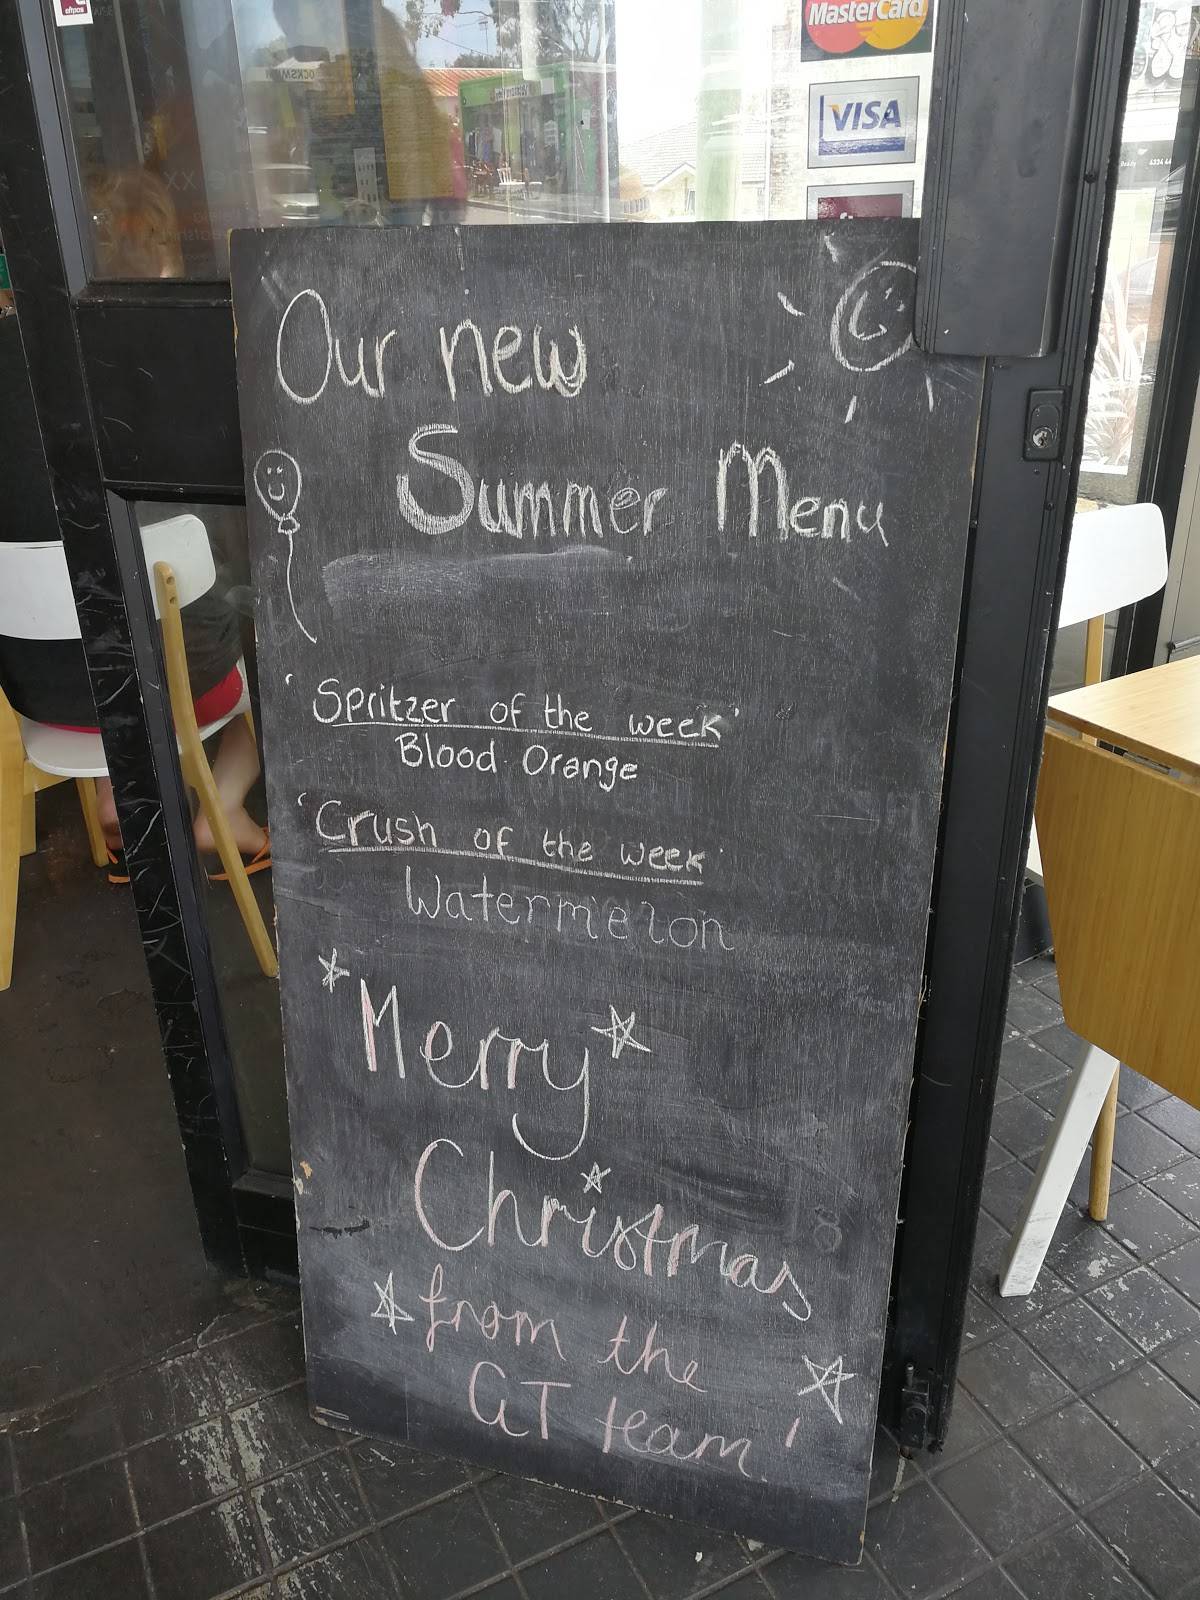 MasterCard
VISA
Our new
Summer Menu
'Spritzer of the week'
Blood Orange
'Crush of the week'
Watermelon
Merry
Christmas
from the
GT team!